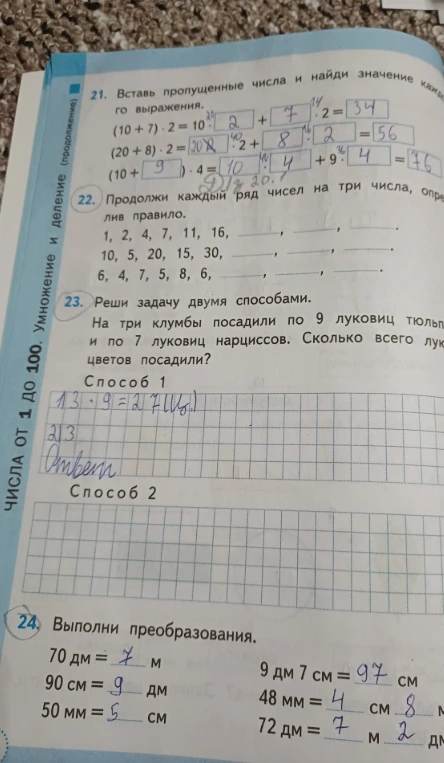 21. Вставь пропущенные числа и найди значение
го выражения.
(10 + 7) · 2 = 10 · 2 + 7 · 2 = 34
(20 + 8) · 2 = 20 · 2 + 8 · 2 = 56
(10 + 9) · 4 = 10 · 4 + 9 · 4 = 76
22. Продолжи каждый ряд чисел на три числа,
лив правило.
1, 2, 4, 7, 11, 16, ____, ____, ____.
10, 5, 20, 15, 30, ____, ____, ____.
6, 4, 7, 5, 8, 6, ____, ____, ____.
23. Реши задачу двумя способами.
На три клумбы посадили по 9 луковиц
и по 7 луковиц нарциссов. Сколько всего
цветов посадили?
Способ 1
1) 3 · 9 = 27
2) 3
Ответ
Способ 2
24. Выполни преобразования.
70 дм = 7 м
9 дм 7 см = 97 см
90 см = 9 дм
48 мм = 4 см 8
50 мм = 5 см
72 дм = 7 м 2
ЧИСЛА ОТ 1 ДО 100. Умножение и деление (продолжение)